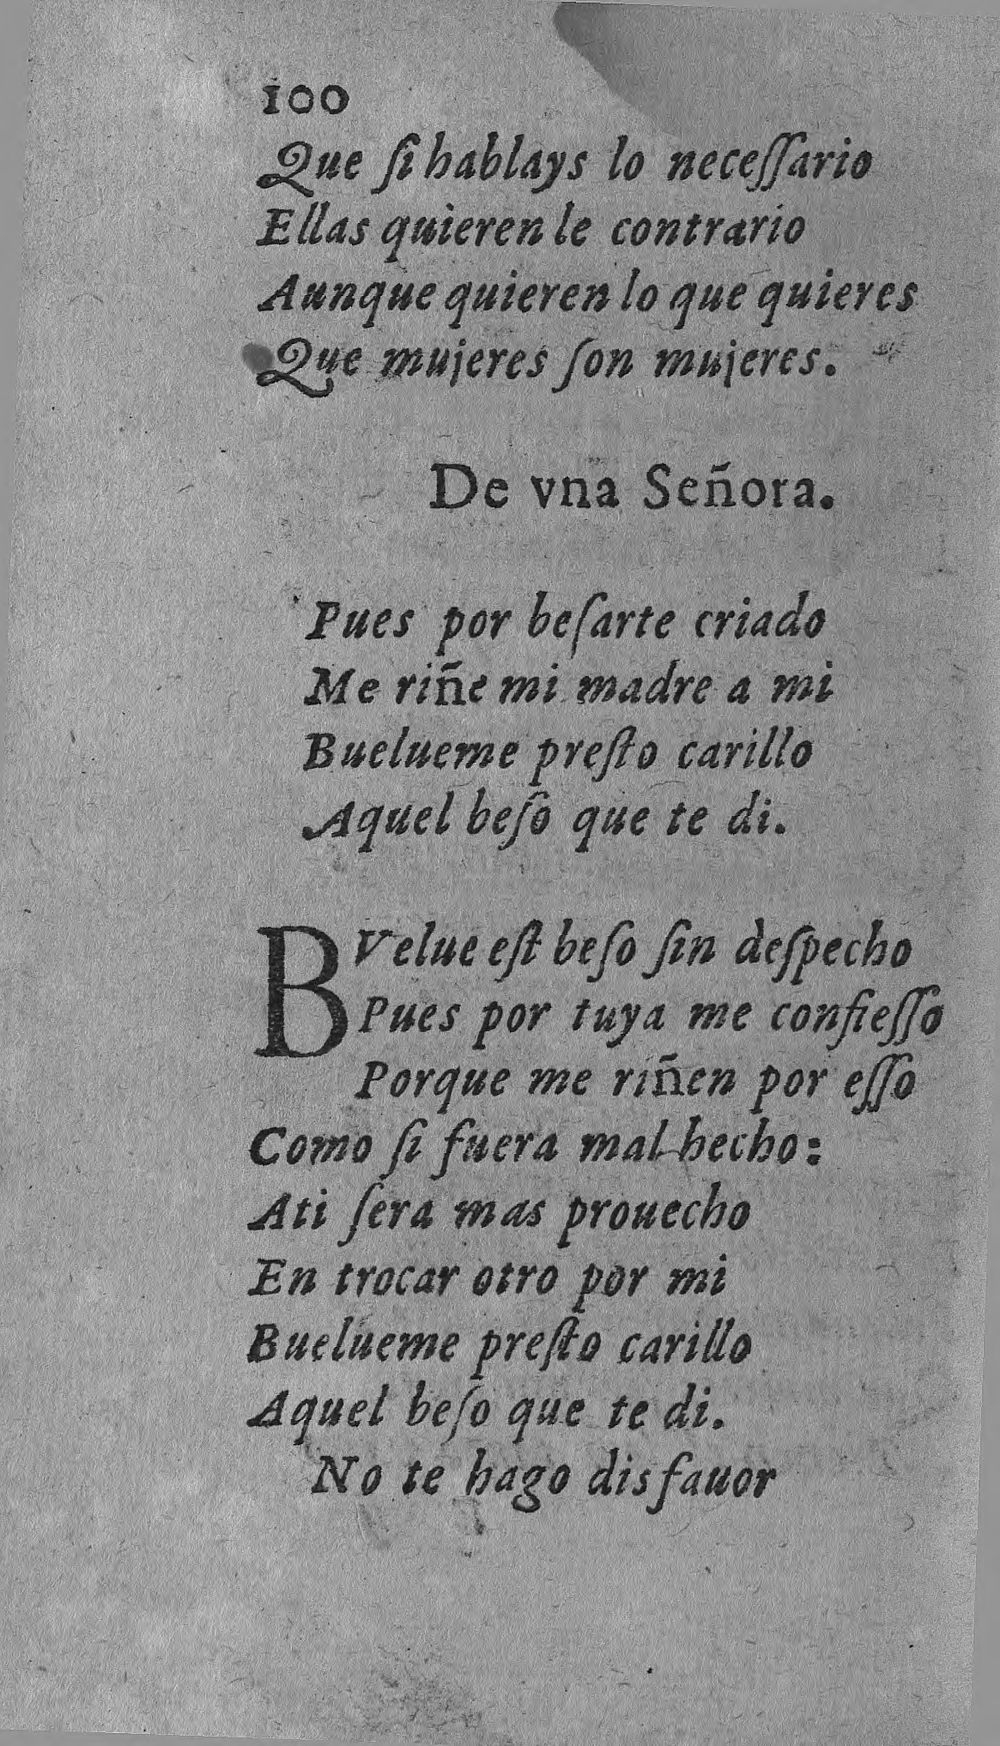 100
Que ſi hablays lo neceſſario
Ellas quieren le contrario
Aunque quieren lo que quieres
Que mujeres ſon mujeres.
De vna Señora.
Pues por beſarte criado
Me riñe mi madre a mi
Buelueme preſto carillo
Aquel beſo que te di.
BVelue eſt beſo ſin deſpecho
Pues por tuya me confieſſo
Porque me riñen por eſſo
Como ſi fuera mal hecho:
Ati ſera mas prouecho
En trocar otro por mi
Buelueme preſto carillo
Aquel beſo que te di.
No te hago disfauor